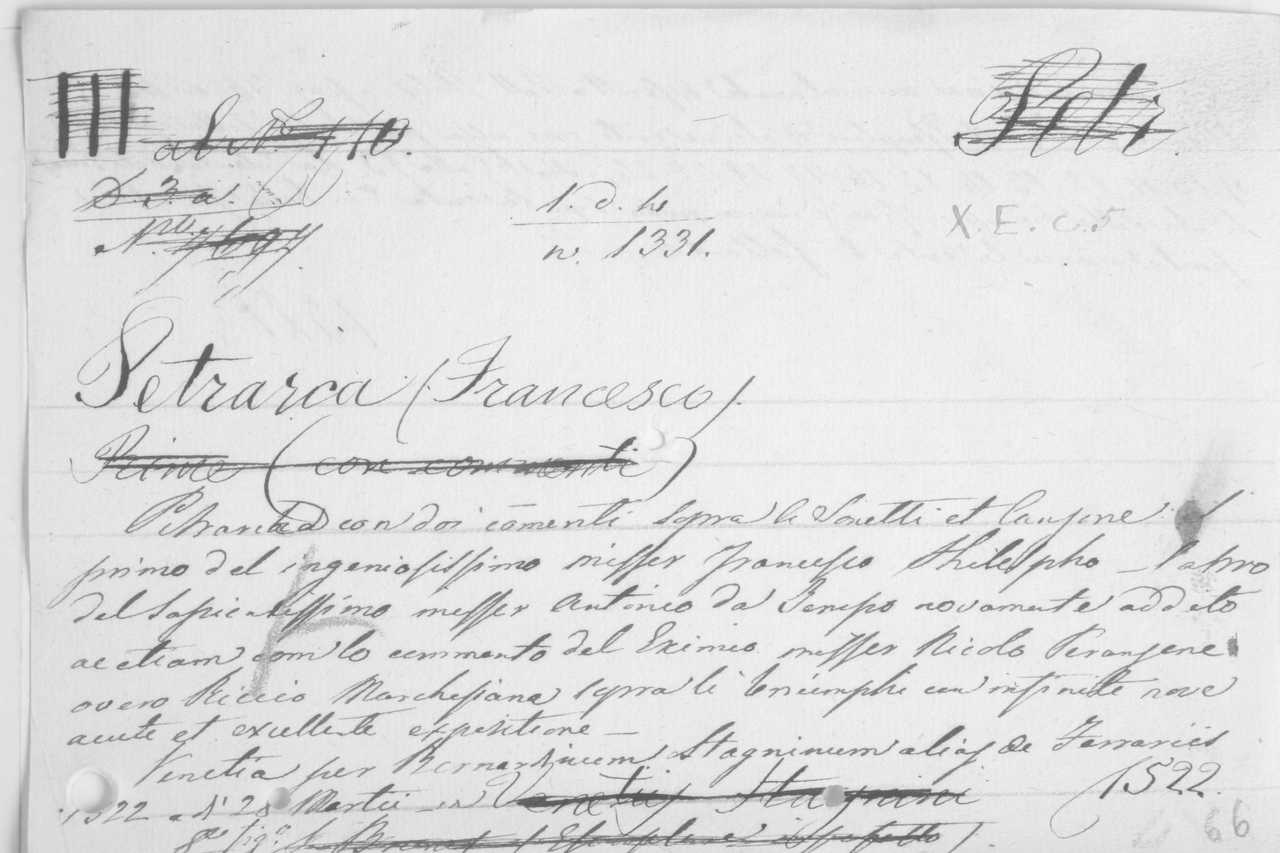 III al N.º 110. Poli.
D. 3. a.
N.ro 7697
1. d. h.
n. 1331.
X. E. c. 5
Petrarca (Francesco).
Rime (con commenti)
Petrarcha con doi cōmenti sopra li Sonetti et Canzone. Il
primo del ingeniosissimo misser Francesco Philelpho – laltro
del sapientissimo messer Antonio da Tempo novamente addito
ac etiam com lo commento del Eximio misser Nicolo Peranzone
overo Riccio Marchesiano sopra li triumphi con infinite nove
acute et excellente expositione –
Venetia per Bernardinum Stagninum alias de Ferrariis
1522 – d' 28 Martii – in Venetiis Stagnini (1522.
66